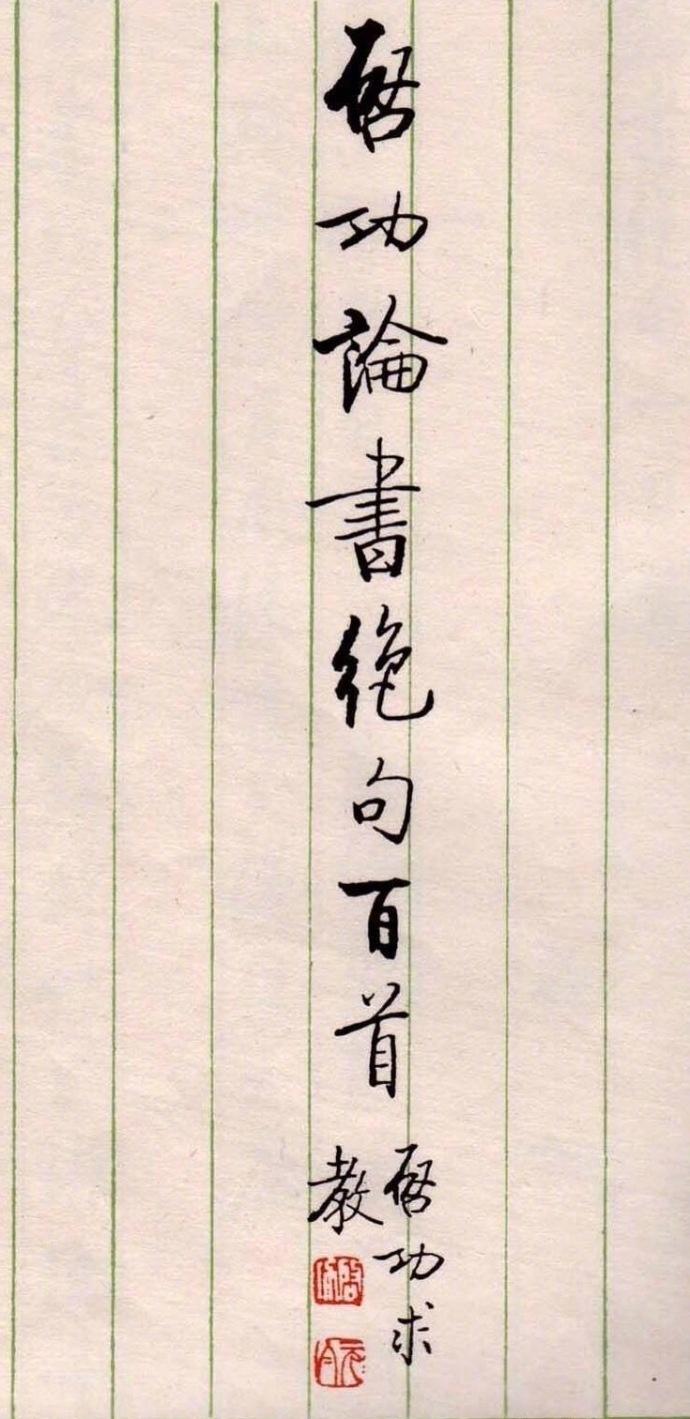 啓功論書絶句百首
啓功求
教